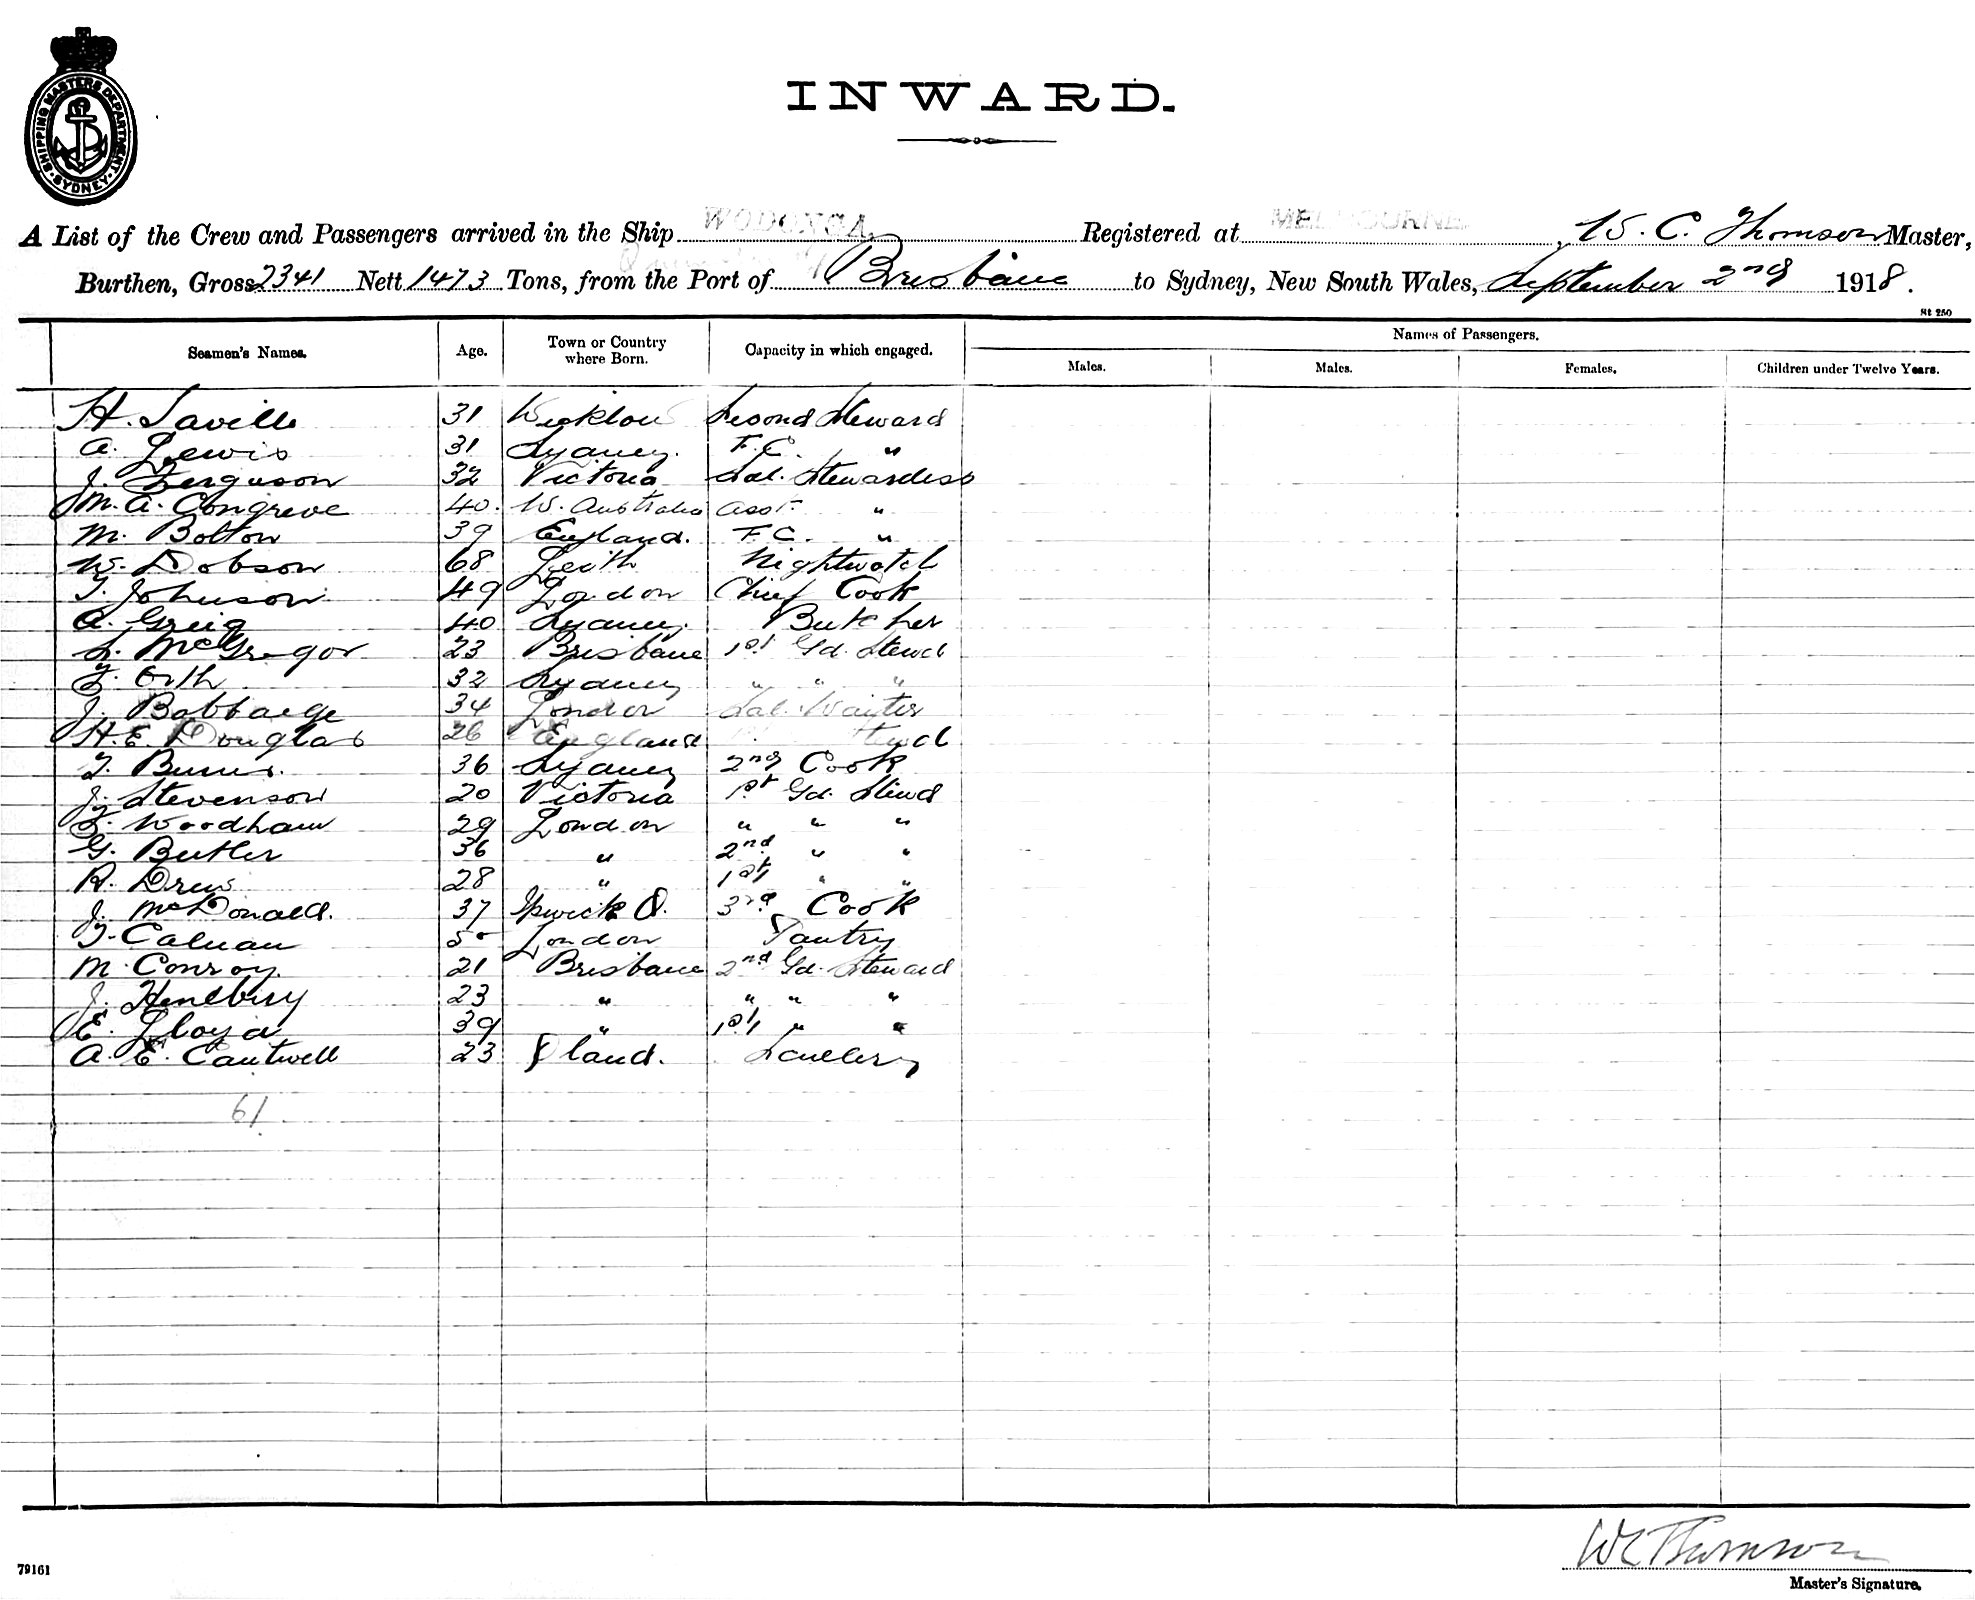 SHIPPING MASTERS DEPARTMENT
SYDNEY
INWARD.
A List of the Crew and Passengers arrived in the Ship WODONGA. Registered at MELBOURNE W. C. Thomson Master,
Burthen, Gross 2341 Nett 1473 Tons, from the Port of Brisbane to Sydney, New South Wales, September 2nd 1918.
St 250
Seamen's Names. Age. Town or Country where Born. Capacity in which engaged. Names of Passengers.
Males. Males. Females. Children under Twelve Years.
H. Saville 31 Wicklow Second Steward
A. Lewis 31 Sydney. F.C. "
J. Ferguson 32 Victoria Sal. Stewardess
M. A. Congreve 40. W. Australia Asst. "
M. Bolton 39 England. F.C. "
W. Dobson 68 Leith Nightwatch
T. Johnson 49 London Chief Cook
A. Greig 40 Sydney. Butcher
McGregor 23 Brisbane 1st Gd. Stewd
Orth 32 Sydney " " "
J. Babbage 34 London Sal. Waiter
H. E. Douglas 26 England Stewd
T. Burns. 36 Sydney 2nd Cook
J. Stevenson 20 Victoria 1st Gd. Stewd
Woodham 29 London " " "
G. Butler 36 " 2nd " "
R. Drew 28 " 1st " "
J. McDonald. 37 Ipwick Q. 3rd Cook
T. Calnan 50 London Pantry
M. Conroy. 21 Brisbane 2nd Gd. Steward
J. Henebery 23 " " " "
E. Lloyd 39 " 1st " "
A. E. Cantwell 23 Qland. Scullery
61
WC Thomson
79161 Master's Signature.